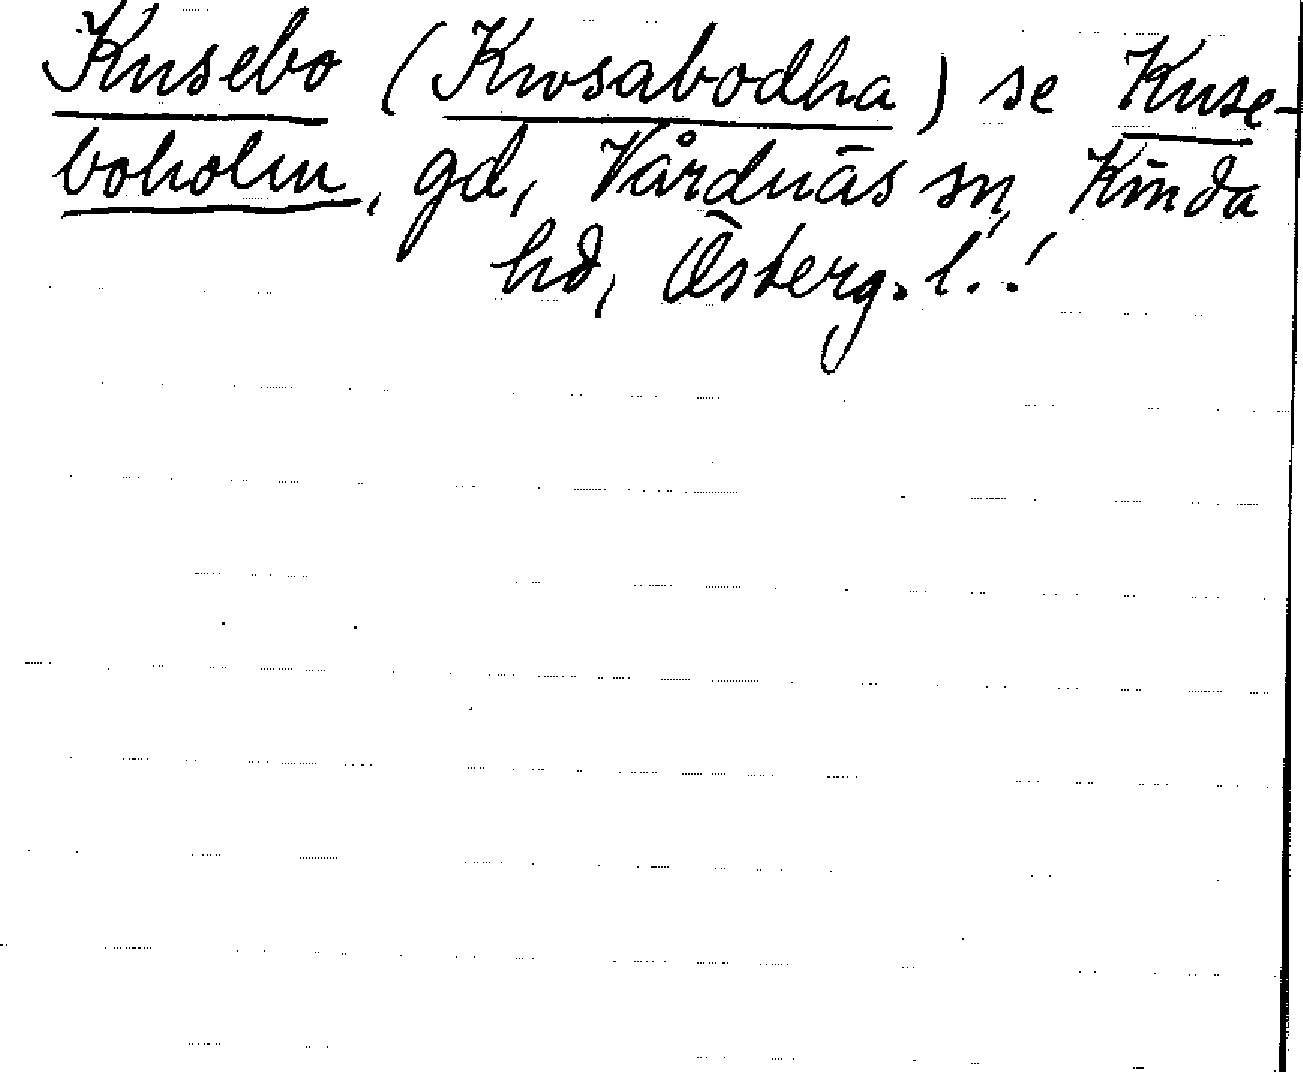 Kusebo (Kwsabodha) se Kuse-
boholm, gd, Vårdnäs sn, Kinda
hd, Österg. l.!